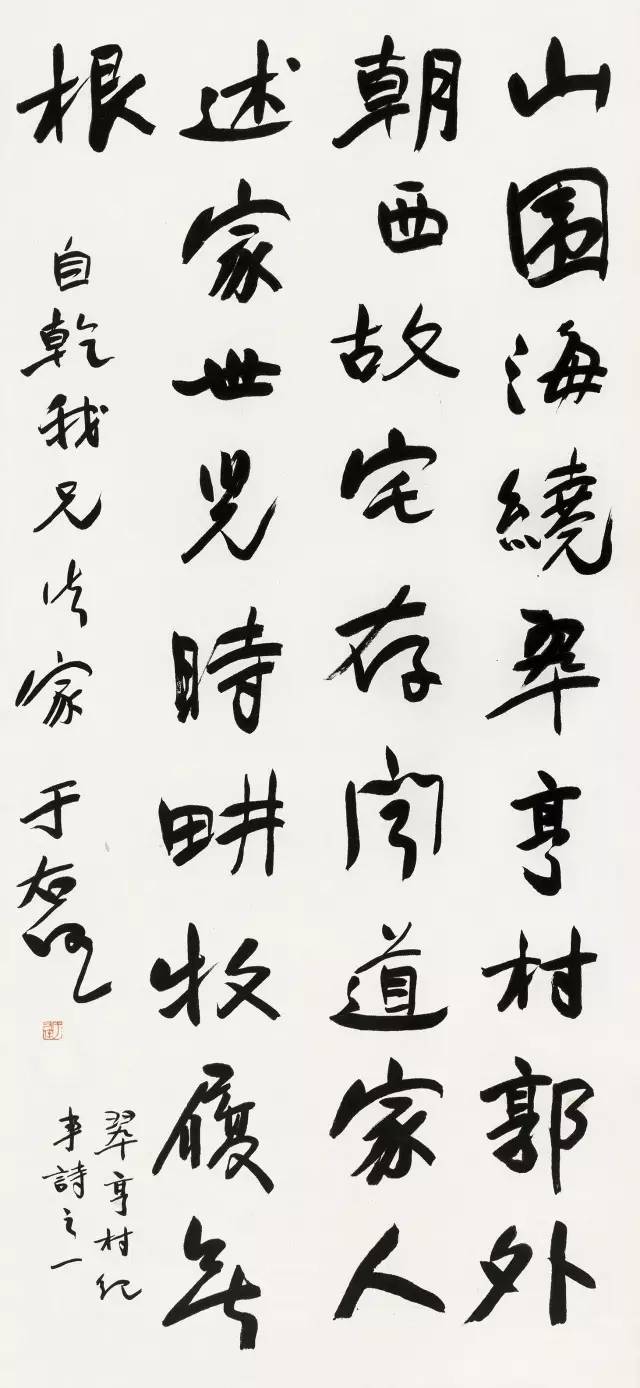 山围海繞翠亨村郭外
朝西故宅存聞道家人
述家世兒時畊牧履無
根
自乾我兄法家 于右任
翠亨村紀
事詩之一